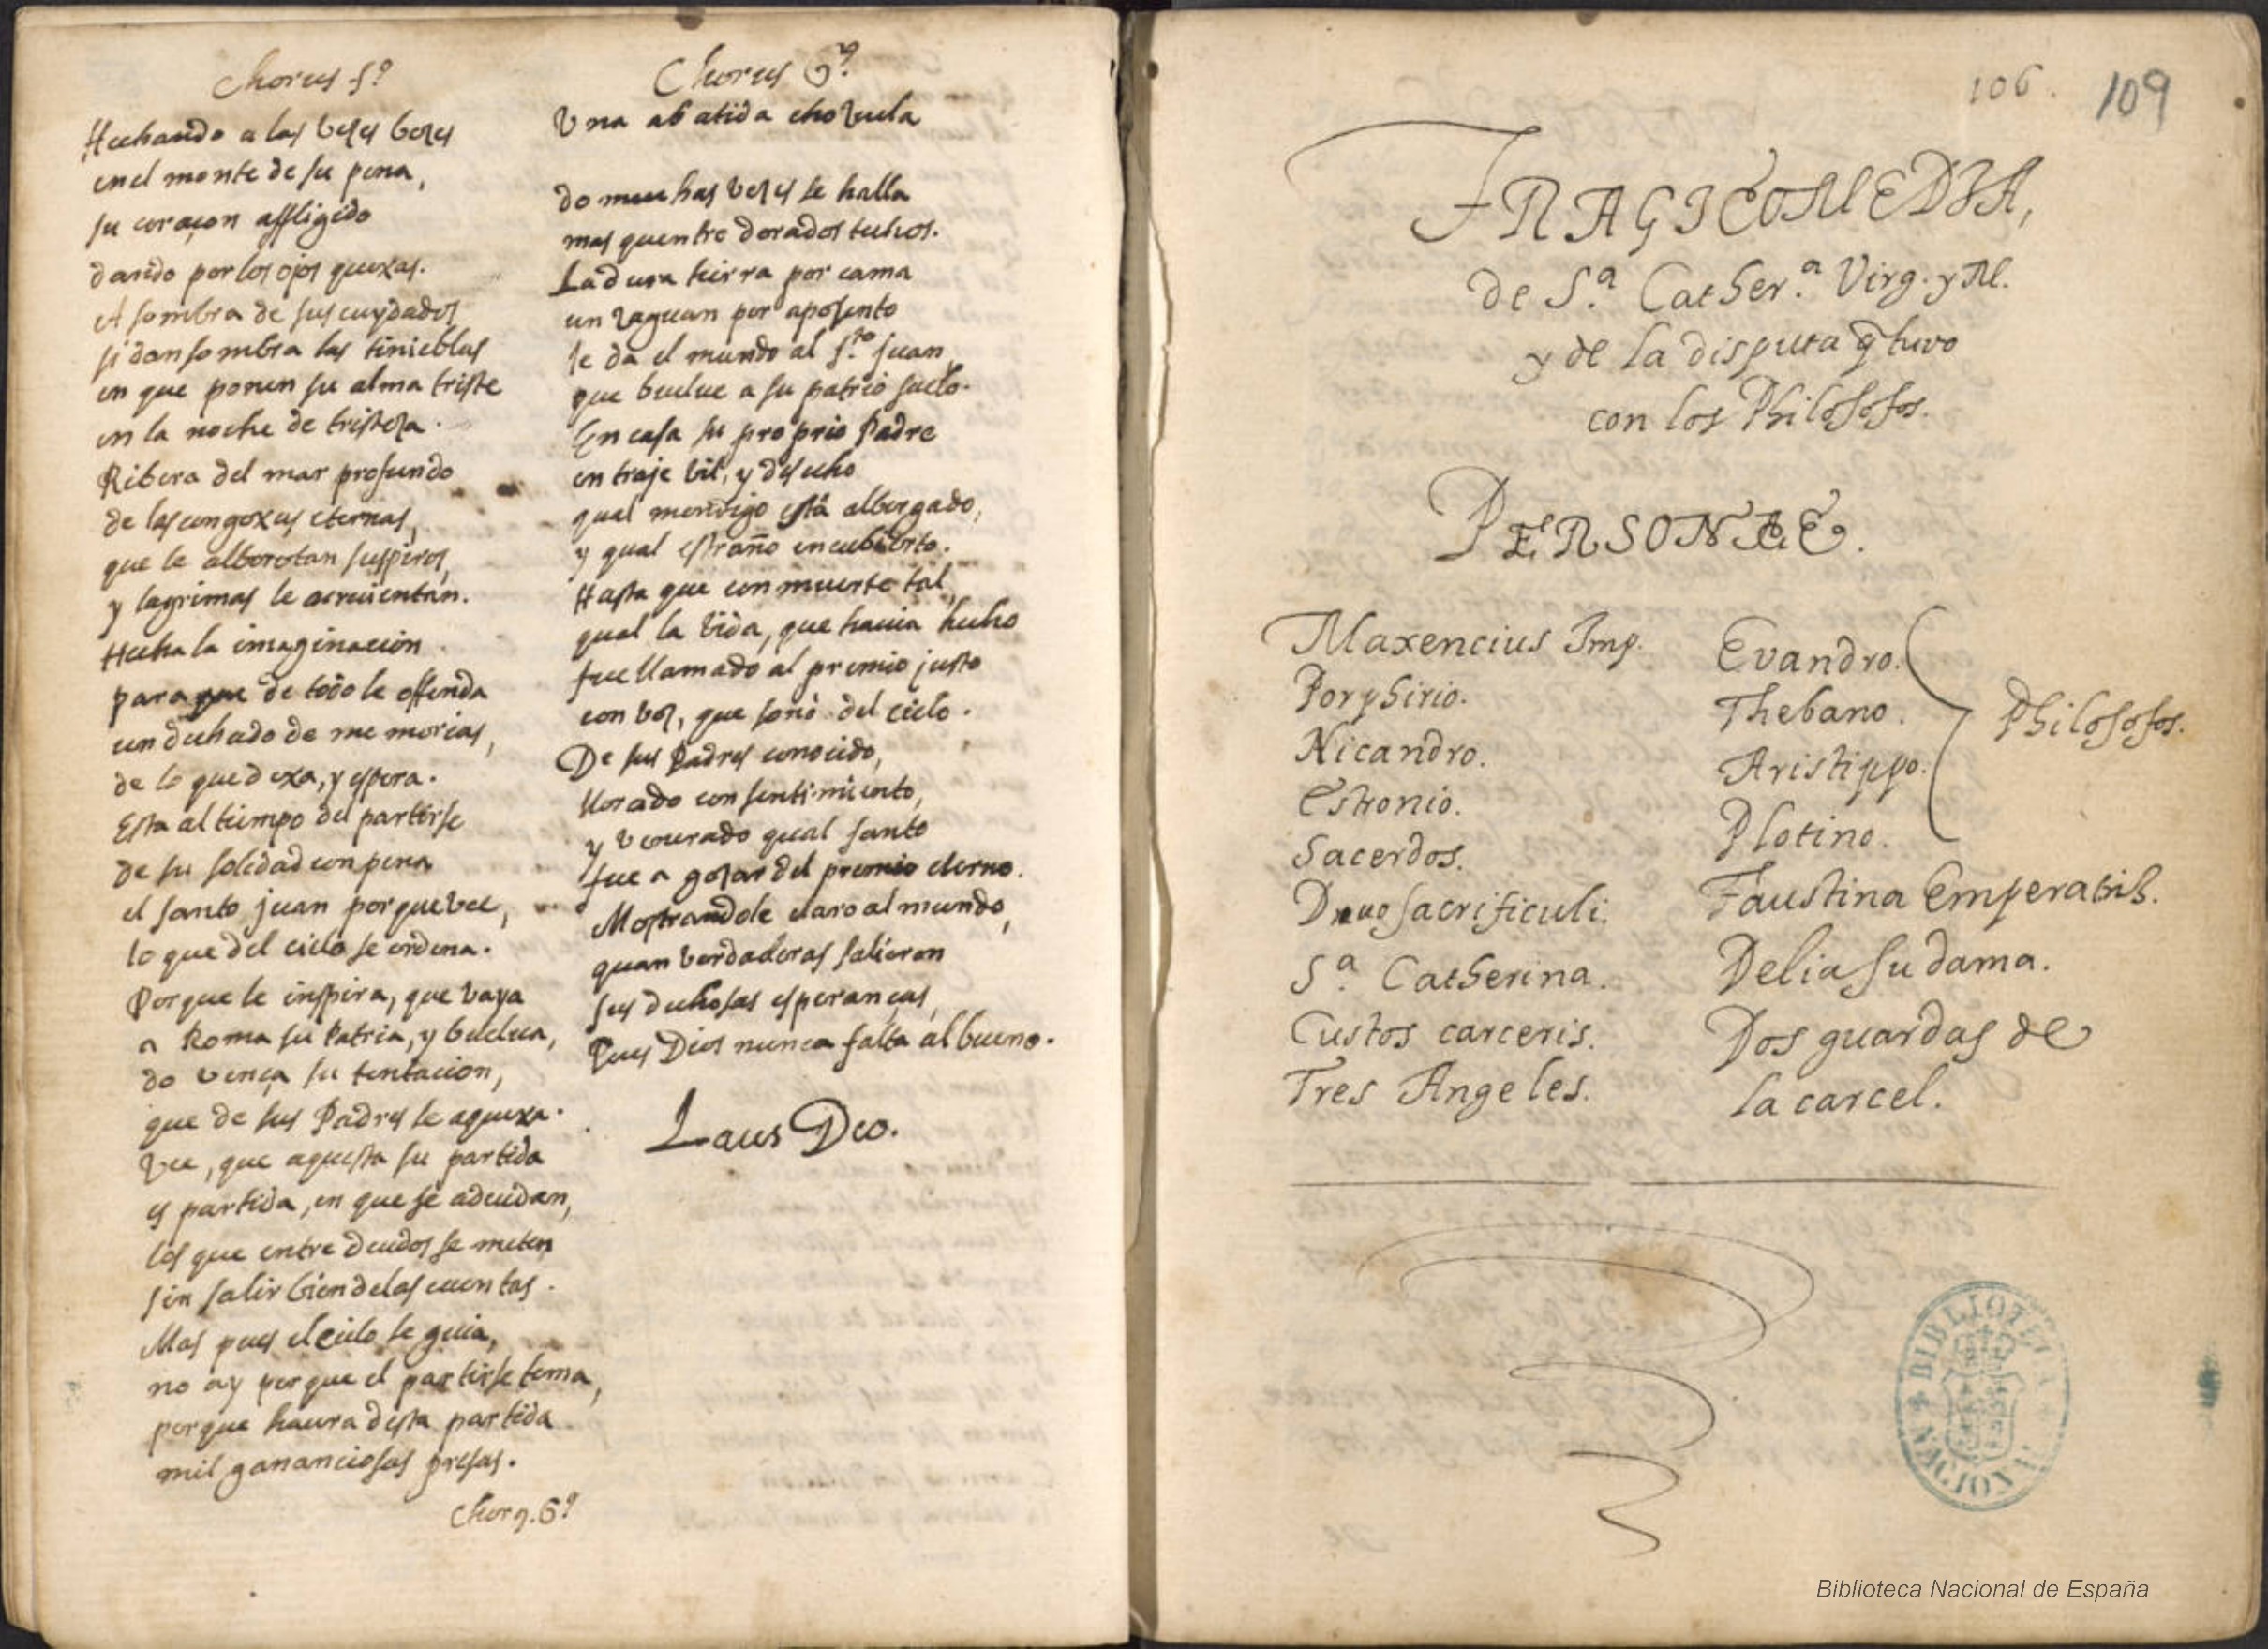 Chorus 5º
Hechando a las vezes vozes
en el monte de su pena,
su coraçon affligido
dando por los ojos quexas.
A sombra de sus cuydados
si dan sombra las tinieblas
en que ponen su alma triste
en la noche de tristeza.
Ribera del mar profundo
de las congoxas eternas,
que le alborotan suspiros,
y lagrimas le acrecientan.
Hecha la imaginacion
para que de todo le offenda
un dechado de memorias,
de lo que dexa, y espera.
Esta al tiempo del partirse
de su soledad con pena
el santo juan porque vee,
lo que del cielo se ordena.
Porque le inspira, que vaya
a Roma su Patria, y buelua,
do vença su tentacion,
que de sus Padres le aquexa.
Vee, que aquesta su partida
es partida, en que se adeudan,
los que entre deudos se meten
sin salir bien de las cuentas.
Mas pues el cielo le guia,
no ay porque el partirse tema,
porque haura desta partida
mil gananciosas presas.
Chorꝯ. 6º
Chorus 6º
Una abatida chozuela
do muchas vezes se halla
mas que entre dorados techos.
La dura tierra por cama
un zaguan por aposento
le da el mundo al S.to juan,
que buelue a su patrio suelo.
En casa su proprio Padre
en traje vil, y desecho
qual mendigo està albergado,
y qual estraño encubierto.
Hasta que con muerte tal,
qual la vida, que hauia hecho
fue llamado al premio justo
con voz, que sonò del cielo.
De sus Padres conocido,
llorado con sentimiento,
y venerado qual santo
fue a gozar del premio eterno.
Mostrandole claro al mundo,
quan verdaderas salieron
sus dichosas esperanças,
Pues Dios nunca falta al bueno.
Laus Deo.
106. 109
TRAGICOMEDIA,
de S.ª Cather.ª Virg. y M.
y de la disputa q̃ tuvo
con los Philosofos.
PERSONAE.
Maxencius Imp.
Porphirio.
Nicandro.
Estronio.
Sacerdos.
Duo sacrificuli.
S.ª Catherina.
Custos carceris.
Tres Angeles.
Evandro.
Thebano.
Aristippo.
Plotino.
Philosofos.
Faustina Emperatris.
Delia su dama.
Dos guardas de
la carcel.
BIBLIOTECA NACIONAL
Biblioteca Nacional de España